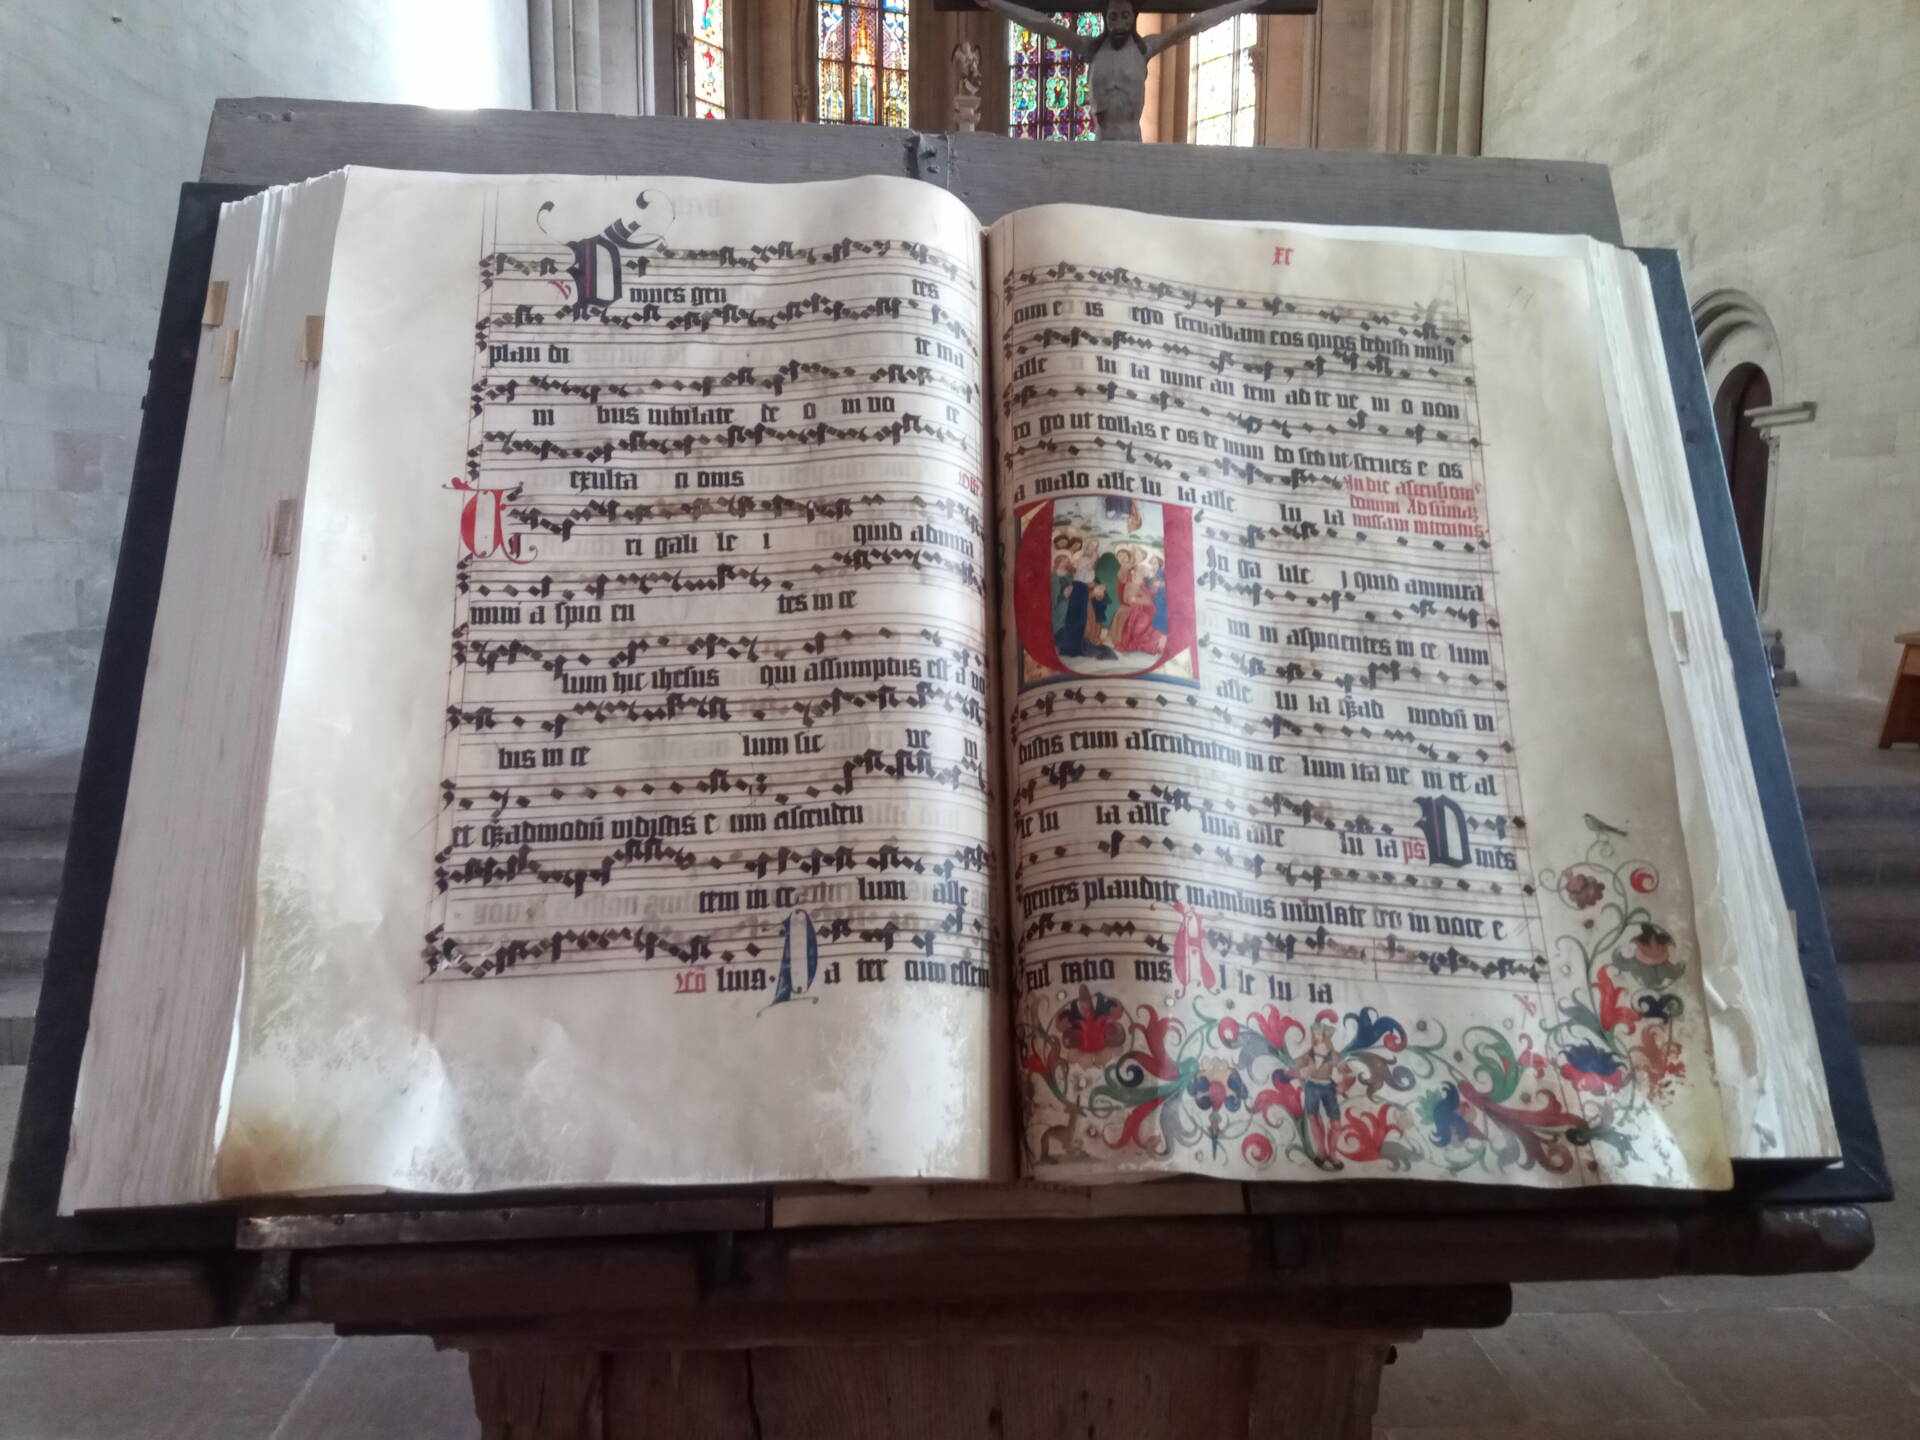 Omnes gen tes
plau di te ma
ni bus iubilate de o in vo ce
exulta ci onis
Vi ri gali le i quid admira
mini a spici en tes in ce
lum hic ihesus qui assumptus est a vo
bis in ce lum sic ve ni
et qadmodu vidistis e um ascenden
tem in ce lum alle
luia. Pa ter cum essem
xc
cum e is ego servabam eos quos dedisti mihi
alle lu ia nunc au tem ad te ve ni o non
ro go ut tollas e os de mun do sed ut serves e os
a malo alle lu ia alle lu ia
In die ascensionis
domini Ad summa
missam introitus
Viri ga lile i quid ammira
mi ni aspicientes in ce lum
alle lu ia qad modu vi
distis eum ascendentem in ce lum ita ve ni et al
le lu ia alle luia alle lu ia ps Omnes
gentes plaudite manibus iubilate deo in voce e
xul tatio nis A l le lu ia